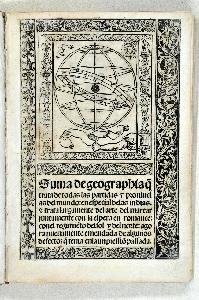 Suma de geographia q̃
trata de todas las partidas y prouin
cias del mundo: en especial delas indias.
y trata largamente del arte del marear
juntamente con la espera en romance:
con el regimiẽto del sol y del norte: ago
ra nueuamente emendada de algunos
defectos q̃ tenia enla impressiõ passada.